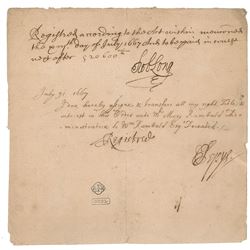 Registred according to the Act within mentioned
the day of July 1667 And to be paid in course
next after £20600
Rob Long
July 31 1667
I doe hereby assigne & transfer all my right, Title &
interest in this Order unto Mrs Mary
to Wm Esq Deceased
Registred
S Pepys